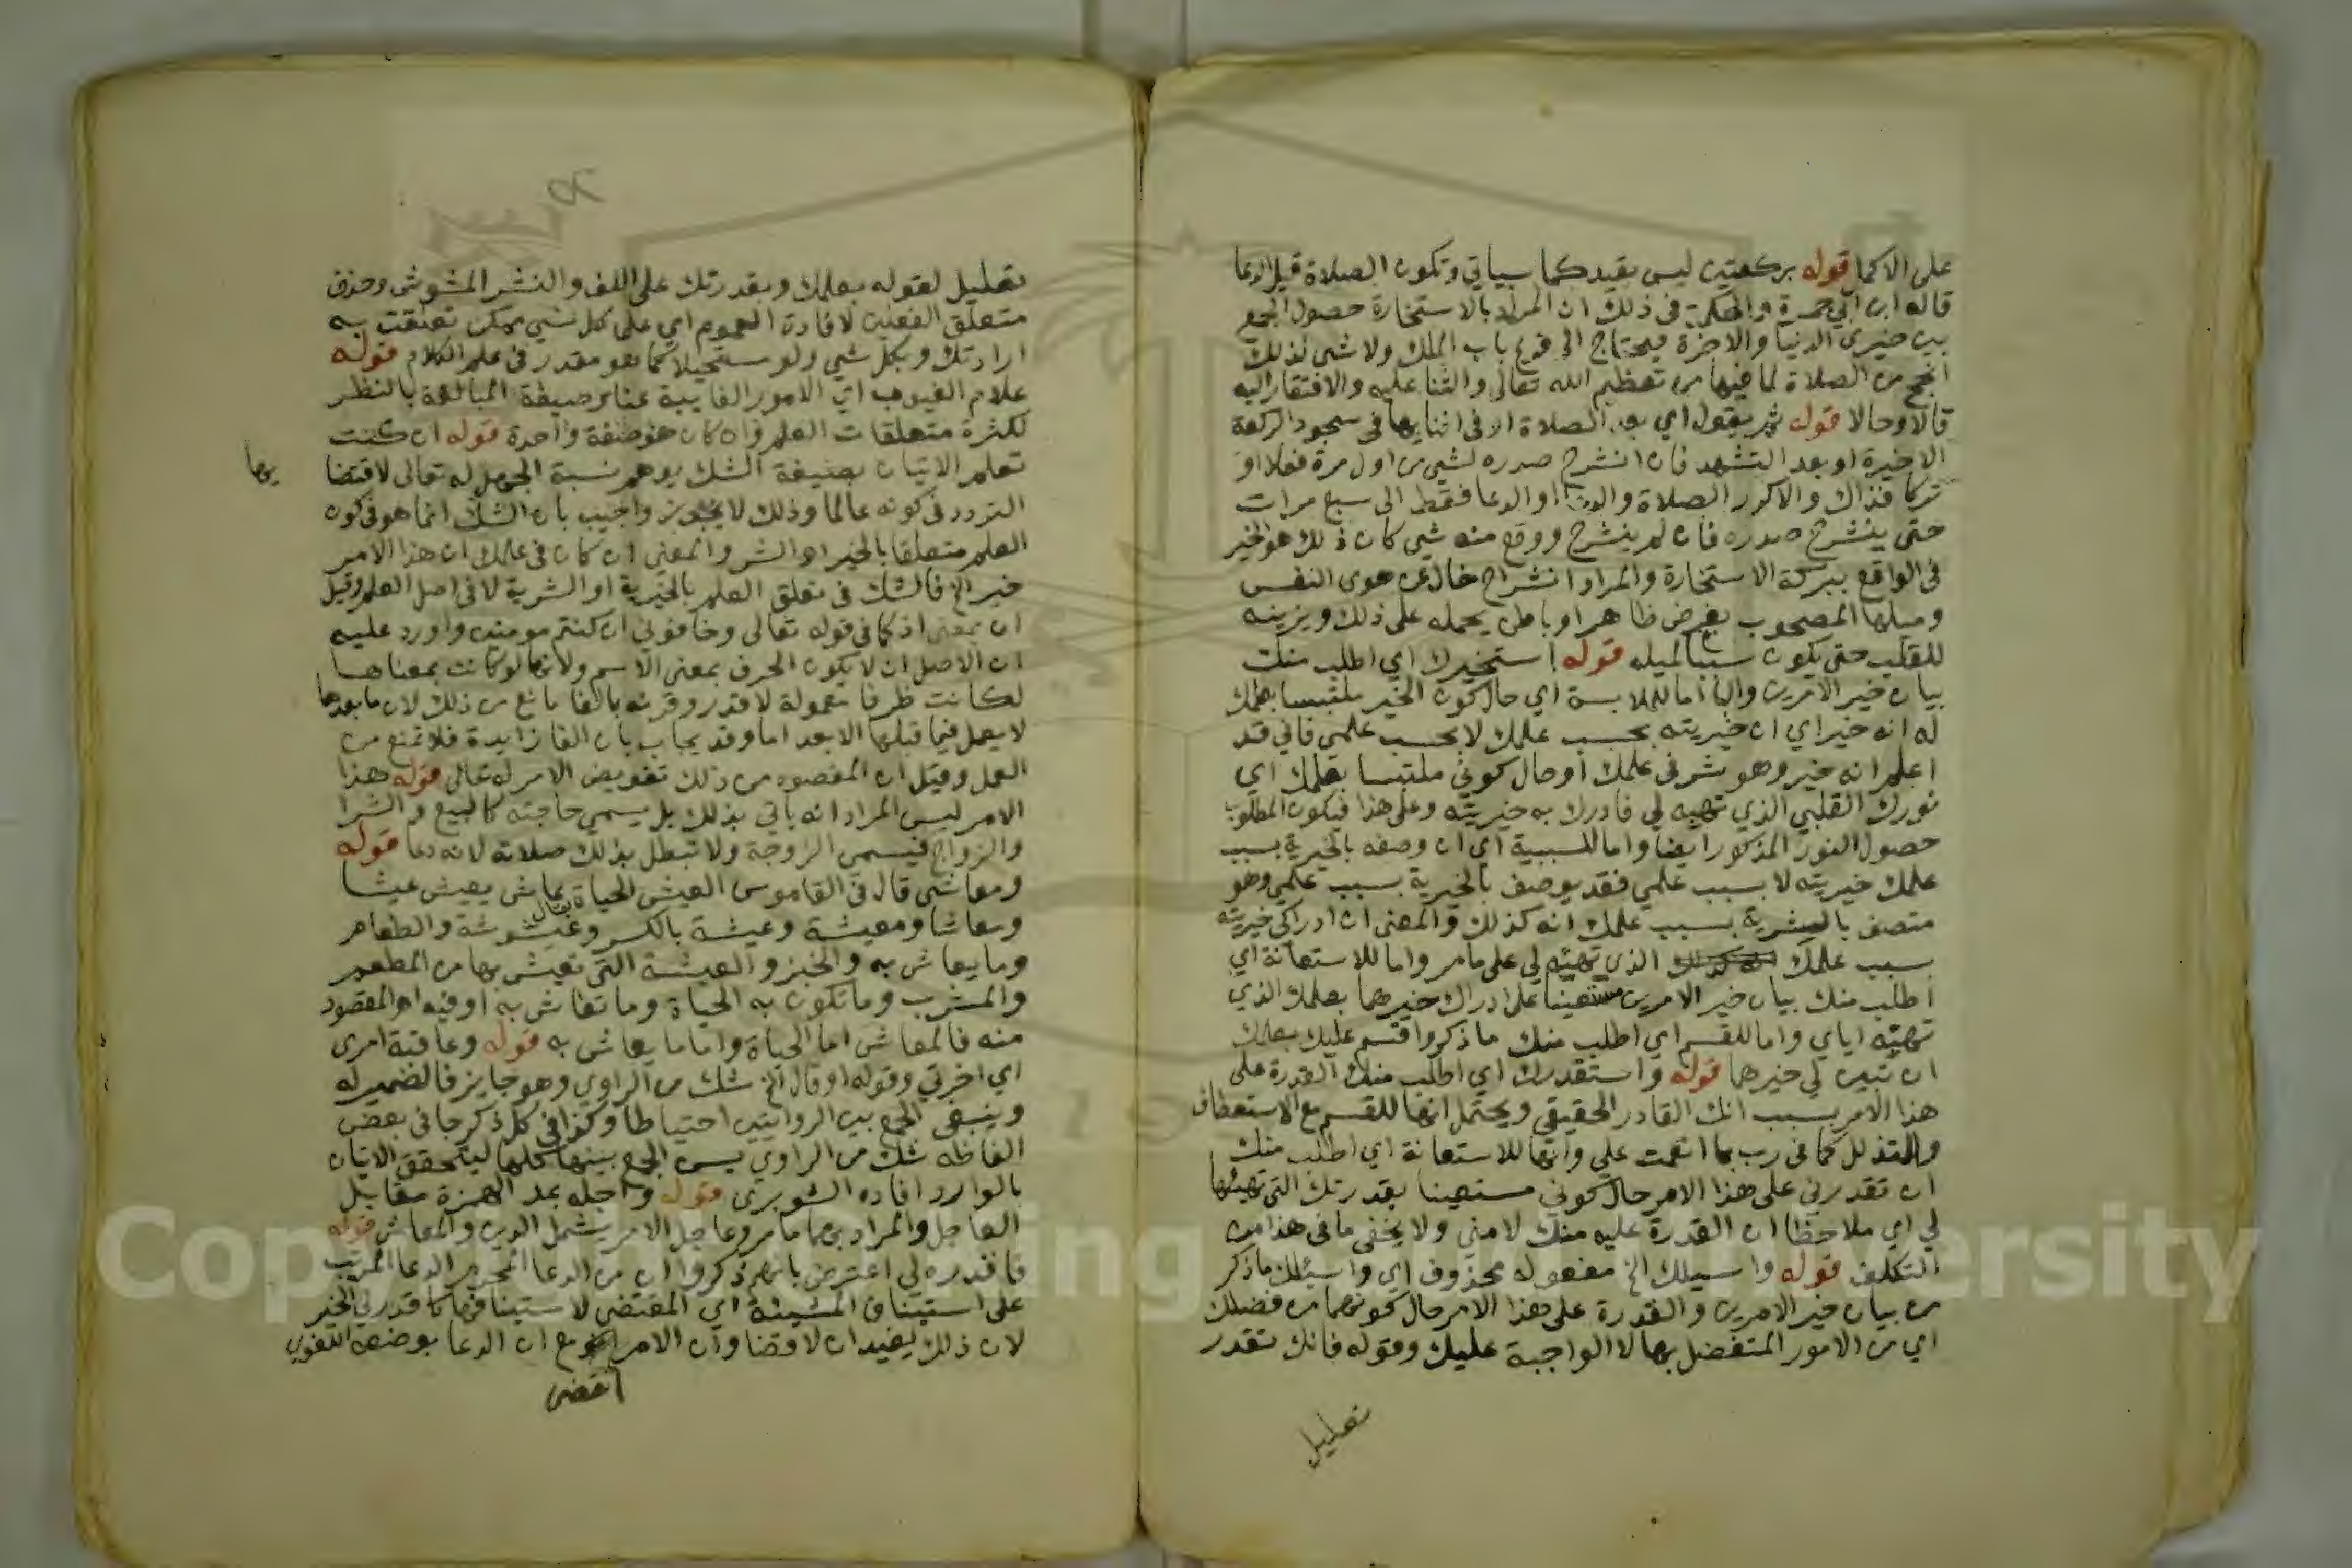 على الاكما قوله بركعتين ليس بقيد كما سياتي وتكون الصلاة قبل الدعا
قاله ابن ابي جمرة والحكمة في ذلك ان المراد بالاستخارة حصول الجمع
بين خيري الدنيا والاخرة فيحتاج الى قرع باب الملك ولا شي لذلك
انجح من الصلاة لما فيها من تعظيم الله تعالى والثنا عليه والافتقار اليه
قالا وحالا قوله ثم يقول اي بعد الصلاة او في اثنايها في سجود الركعة
الاخيرة او بعد التشهد فان انشرح صدره لشي من اول مرة فعلا او
تركا فذاك والا كرر الصلاة والدعا او الدعا فقط الى سبع مرات
حتى ينشرح صدره فان لم ينشرح ووقع منه شي كان ذلك هو الخير
في الواقع ببركة الاستخارة والمراد انشراح خال عن هوى النفس
وميلها المصحوب بغرض ظاهر او باطن يحمله على ذلك ويزينه
للقلب حتى يكون سببا لميله قوله استخيرك اي اطلب منك
بيان خير الامرين والبا اما للملابسة اي حال كون الخير ملتبسا بعلمك
له انه خير اي ان خيريته بحسب علمك لا بحسب علمي فاني قد
اعلم انه خير وهو شر في علمك او حال كوني ملتبسا بعلمك اي
نورك القلبي الذي تهبه لي فادرك به خيريته وعلى هذا فيكون المطلوب
حصول النور المذكور ايضا واما للسببية اي ان وصفه بالخيرية بسبب
علمك خيريته لا بسبب علمي فقد يوصف بالخيرية بسبب علمي وهو
متصف بالشرية بسبب علمك انه كذلك والمعنى ان ادراكي خيريته
بسبب علمك الذي تهبه لي على ما مر واما للاستعانة اي
اطلب منك بيان خير الامرين مستعينا على ادراك خيرهما بعلمك الذي
تهبه اياي واما للقسم اي اطلب منك ما ذكر واقسم عليك بعلمك
ان تبين لي خيرهما قوله واستقدرك اي اطلب منك القدرة على
هذا الامر بسبب انك القادر الحقيقي ويحتمل انها للقسم مع الاستعطاف
والتذلل كما في رب بما انعمت علي وانها للاستعانة اي اطلب منك
ان تقدرني على هذا الامر حال كوني مستعينا بقدرتك التي تهبها
لي اي ملاحظا ان القدرة عليه منك لا مني ولا يخفى ما في هذا من
التكلف قوله واسيلك الخ مفعوله محذوف اي واسيلك ما ذكر
من بيان خير الامرين والقدرة على هذا الامر حال كونهما من فضلك
اي من الامور المتفضل بها لا الواجبة عليك وقوله فانك تقدر
تعليل
تعليل لقوله بعلمك وبقدرتك على اللف والنشر المشوش وحذف
متعلق الفعلين لافادة العموم اي على كل شي ممكن تعلقت به
ارادتك وبكل شي ولو مستحيلا كما هو مقدر في علم الكلام قوله
علام الغيوب اي الامور الغايبة عنا وصيغة المبالغة بالنظر
لكثرة متعلقات العلم وان كان هو صفة واحدة قوله ان كنت
تعلم الاتيان بصيغة الشك يوهم نسبة الجهل له تعالى لاقتضا
يها
التردد في كونه عالما وذلك لا يجوز واجيب بان الشك انما هو في كون
العلم متعلقا بالخير او الشر والمعنى ان كان في علمك ان هذا الامر
خير الخ فالشك في تعلق العلم بالخيرية او الشرية لا في اصل العلم وقيل
ان بمعنى اذ كما في قوله تعالى وخافوني ان كنتم مومنين واورد عليه
ان الاصل ان لا يكون الحرف بمعنى الاسم ولانها لو كانت بمعناها
لكانت ظرفا معمولة لاقدر وقرنه بالفا مانع من ذلك لان ما بعدها
لا يعمل فيما قبلها الا بعد اما وقد يجاب بان الفا زايدة فلا تمنع من
العمل وقيل ان المقصود من ذلك تفويض الامر له تعالى قوله هذا
الامر ليس المراد انه ياتي بذلك بل يسمي حاجته كالبيع والشرا
والزواج فيسمي الزوجة ولا تبطل بذلك صلاته لانه دعا قوله
ومعاشي قال في القاموس العيش الحياة يقال عاش يعيش عيشا
ومعاشا ومعيشة وعيشة بالكسر وعيشوشة والطعام
وما يعاش به والخبز والعيشة التي تعيش بها من المطعم
والمشرب وما تكون به الحياة وما تعاش به او فيه اهـ المقصود
منه فالمعاش اما الحياة واما ما يعاش به قوله وعاقبة امري
اي اخرتي وقوله او قال الخ شك من الراوي وهو جايز فالضمير له
وينبغي الجمع بين الروايتين احتياطا وكذا في كل ذكر جا في بعض
الفاظه شك من الراوي يسن الجمع بينها كلها ليتحقق الاتيان
بالوارد افاده الشوبري قوله واجله بمد الهمزة مقابل
العاجل والمراد بهما ما مر وعاجل الامر يشمل الدين والمعاش قوله
فاقدره لي اعترض بانهم ذكروا ان من الدعا المحرم الدعا المرتب
على استيناف المشيئة اي المقتضي لاستينافها كاقدر لي الخير
لان ذلك يفيد ان لا قضا وان الامر مع ان الدعا بوضعه اللغوي
اقتضى